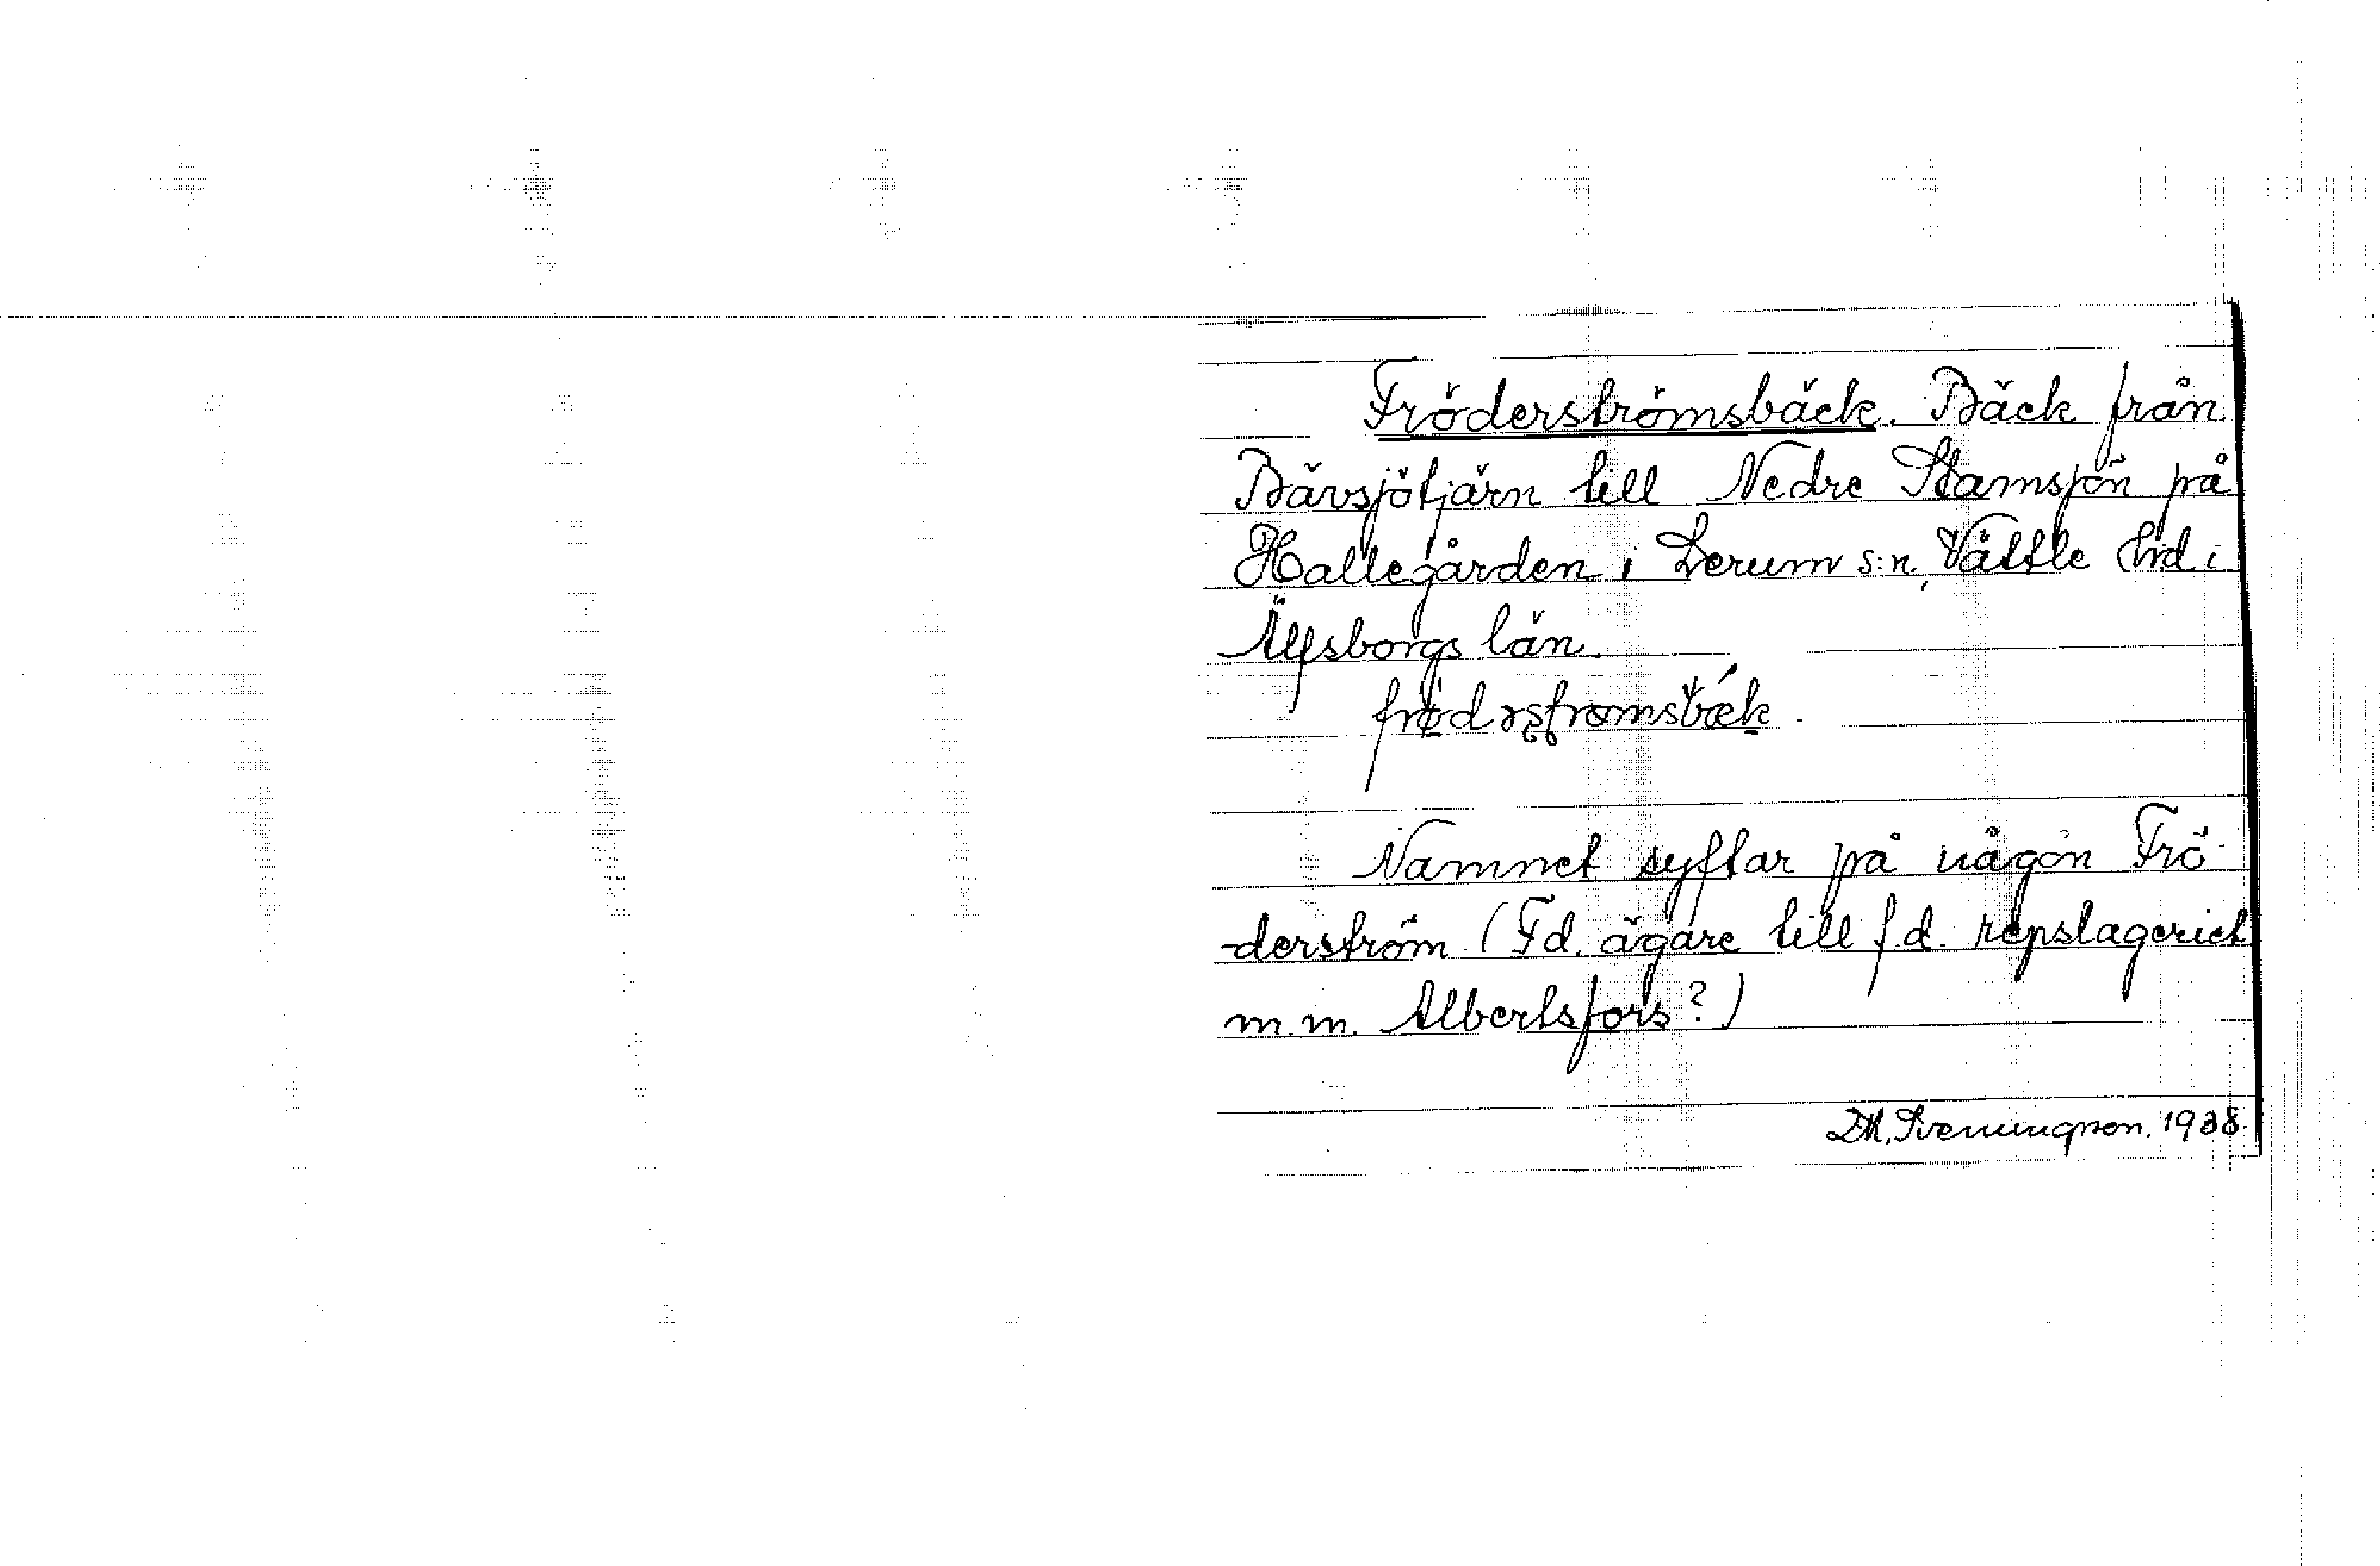 Fröderströmsbäck. Bäck från
Bävsjötjärn till Nedre Stamsjön på
Hallegården i Lerum s:n, Vättle hd i
Älfsborgs län.
Namnet syftar på någon Frö-
-derström (F.d. ägare till f.d. repslageriet
m.m. Albertsfors?)
Sveningson. 1938.